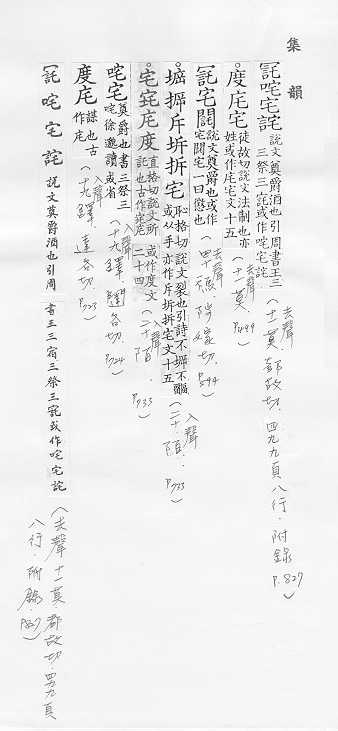 集韻
託咤宅詫 說文奠爵酒也引周書王三
三祭三託或作咤宅詫
(去聲 十一莫 都故切 四九九頁八行 附錄 P.827)
度庑宅 徒故切說文法制也亦
姓或作庑宅文十五
(去聲 十一莫 P.499)
託宅 說文奠爵也或作
宅闕宅一曰懲也
(去聲 四十禡 陟嫁切 P.594)
斥坼拆宅 恥格切說文裂也引詩不不
或从手亦作斥坼宅文十五
(入聲 二十陌 P.733)
宅度 直格切說文所
託也古作 或作度文
二十四
(入聲 二十陌 P.733)
咤宅 奠爵也書三祭三
咤徐邈讀或省
(入聲 十九鐸 達各切 P.724)
度庑 謀也古
作庑
(入聲 十九鐸 達各切 P.723)
託咤宅詫 說文奠爵酒也引周書王三宿三祭三託或作咤宅詫
(去聲 十一莫 都故切 四九九頁
八行 附錄 P.827)